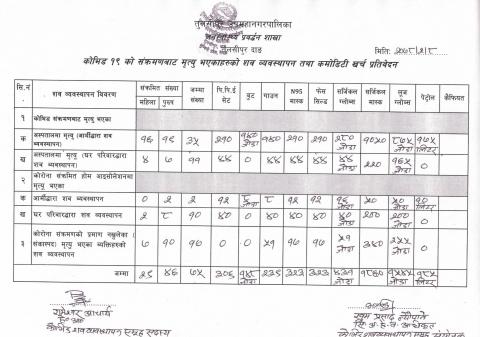 तुलसीपुर उपमहानगरपालिका
जनस्वास्थ्य प्रवर्द्धन शाखा
तुलसीपुर दाङ
मितिः २०७८/२/८
कोभिड १९ को संक्रमणबाट मृत्यु भएकाहरुको शव व्यवस्थापन तथा कमोडिटी खर्च प्रतिवेदन
सि.नं शव व्यवस्थापन विवरण संक्रमित संख्या महिला पुरुष जम्मा संख्या पि.पि.ई सेट बुट गाउन N95 मास्क फेस सिल्ड सर्जिकल ग्लोब्स सर्जिकल मास्क लूज ग्लोब्स पेट्रोल कैफियत
१ कोभिड संक्रमणबाट मृत्यु भएका
क अस्पतालमा मृत्यु (आर्मीद्वारा शव व्यवस्थापन) १६ १९ ३५ २१० १४० जोडा १४० २१० २१० २८० जोडा १०५० ८७५ जोडा १७५ लिटर
ख अस्पतालमा मृत्यु (घर परिवारद्वारा शव व्यवस्थापन) ४ ७ ११ ४४ ० ४४ ४४ ४४ ४४ जोडा २२० १६५ जोडा ०
२ कोरोना संक्रमित होम आइसोलेशनमा मृत्यु भएका
क आर्मीद्वारा शव व्यवस्थापन ० २ २ १२ ८ जोडा ८ १२ १२ १६ जोडा ५० ५० जोडा १० लिटर
ख घर परिवारद्वारा शव व्यवस्थापन २ ८ १० ४० ० ४० ४० ४० ४० जोडा २०० २०० जोडा ०
३ कोरोना संक्रमणको प्रमाण नखुलेका (संकास्पद) मृत्यु भएका व्यक्तिहरुको शव व्यवस्थापन ७ १० १७ ० ० ५१ १७ १७ ५१ जोडा ३४० २५५ जोडा ०
जम्मा २९ ४६ ७५ ३०६ १४८ जोडा ३२३ ३२३ ४३१ जोडा १८६० १५४५ जोडा १८५ लिटर
आचार्य
कोभिड शव व्यवस्थापन समूह सदस्य
प्रसाद